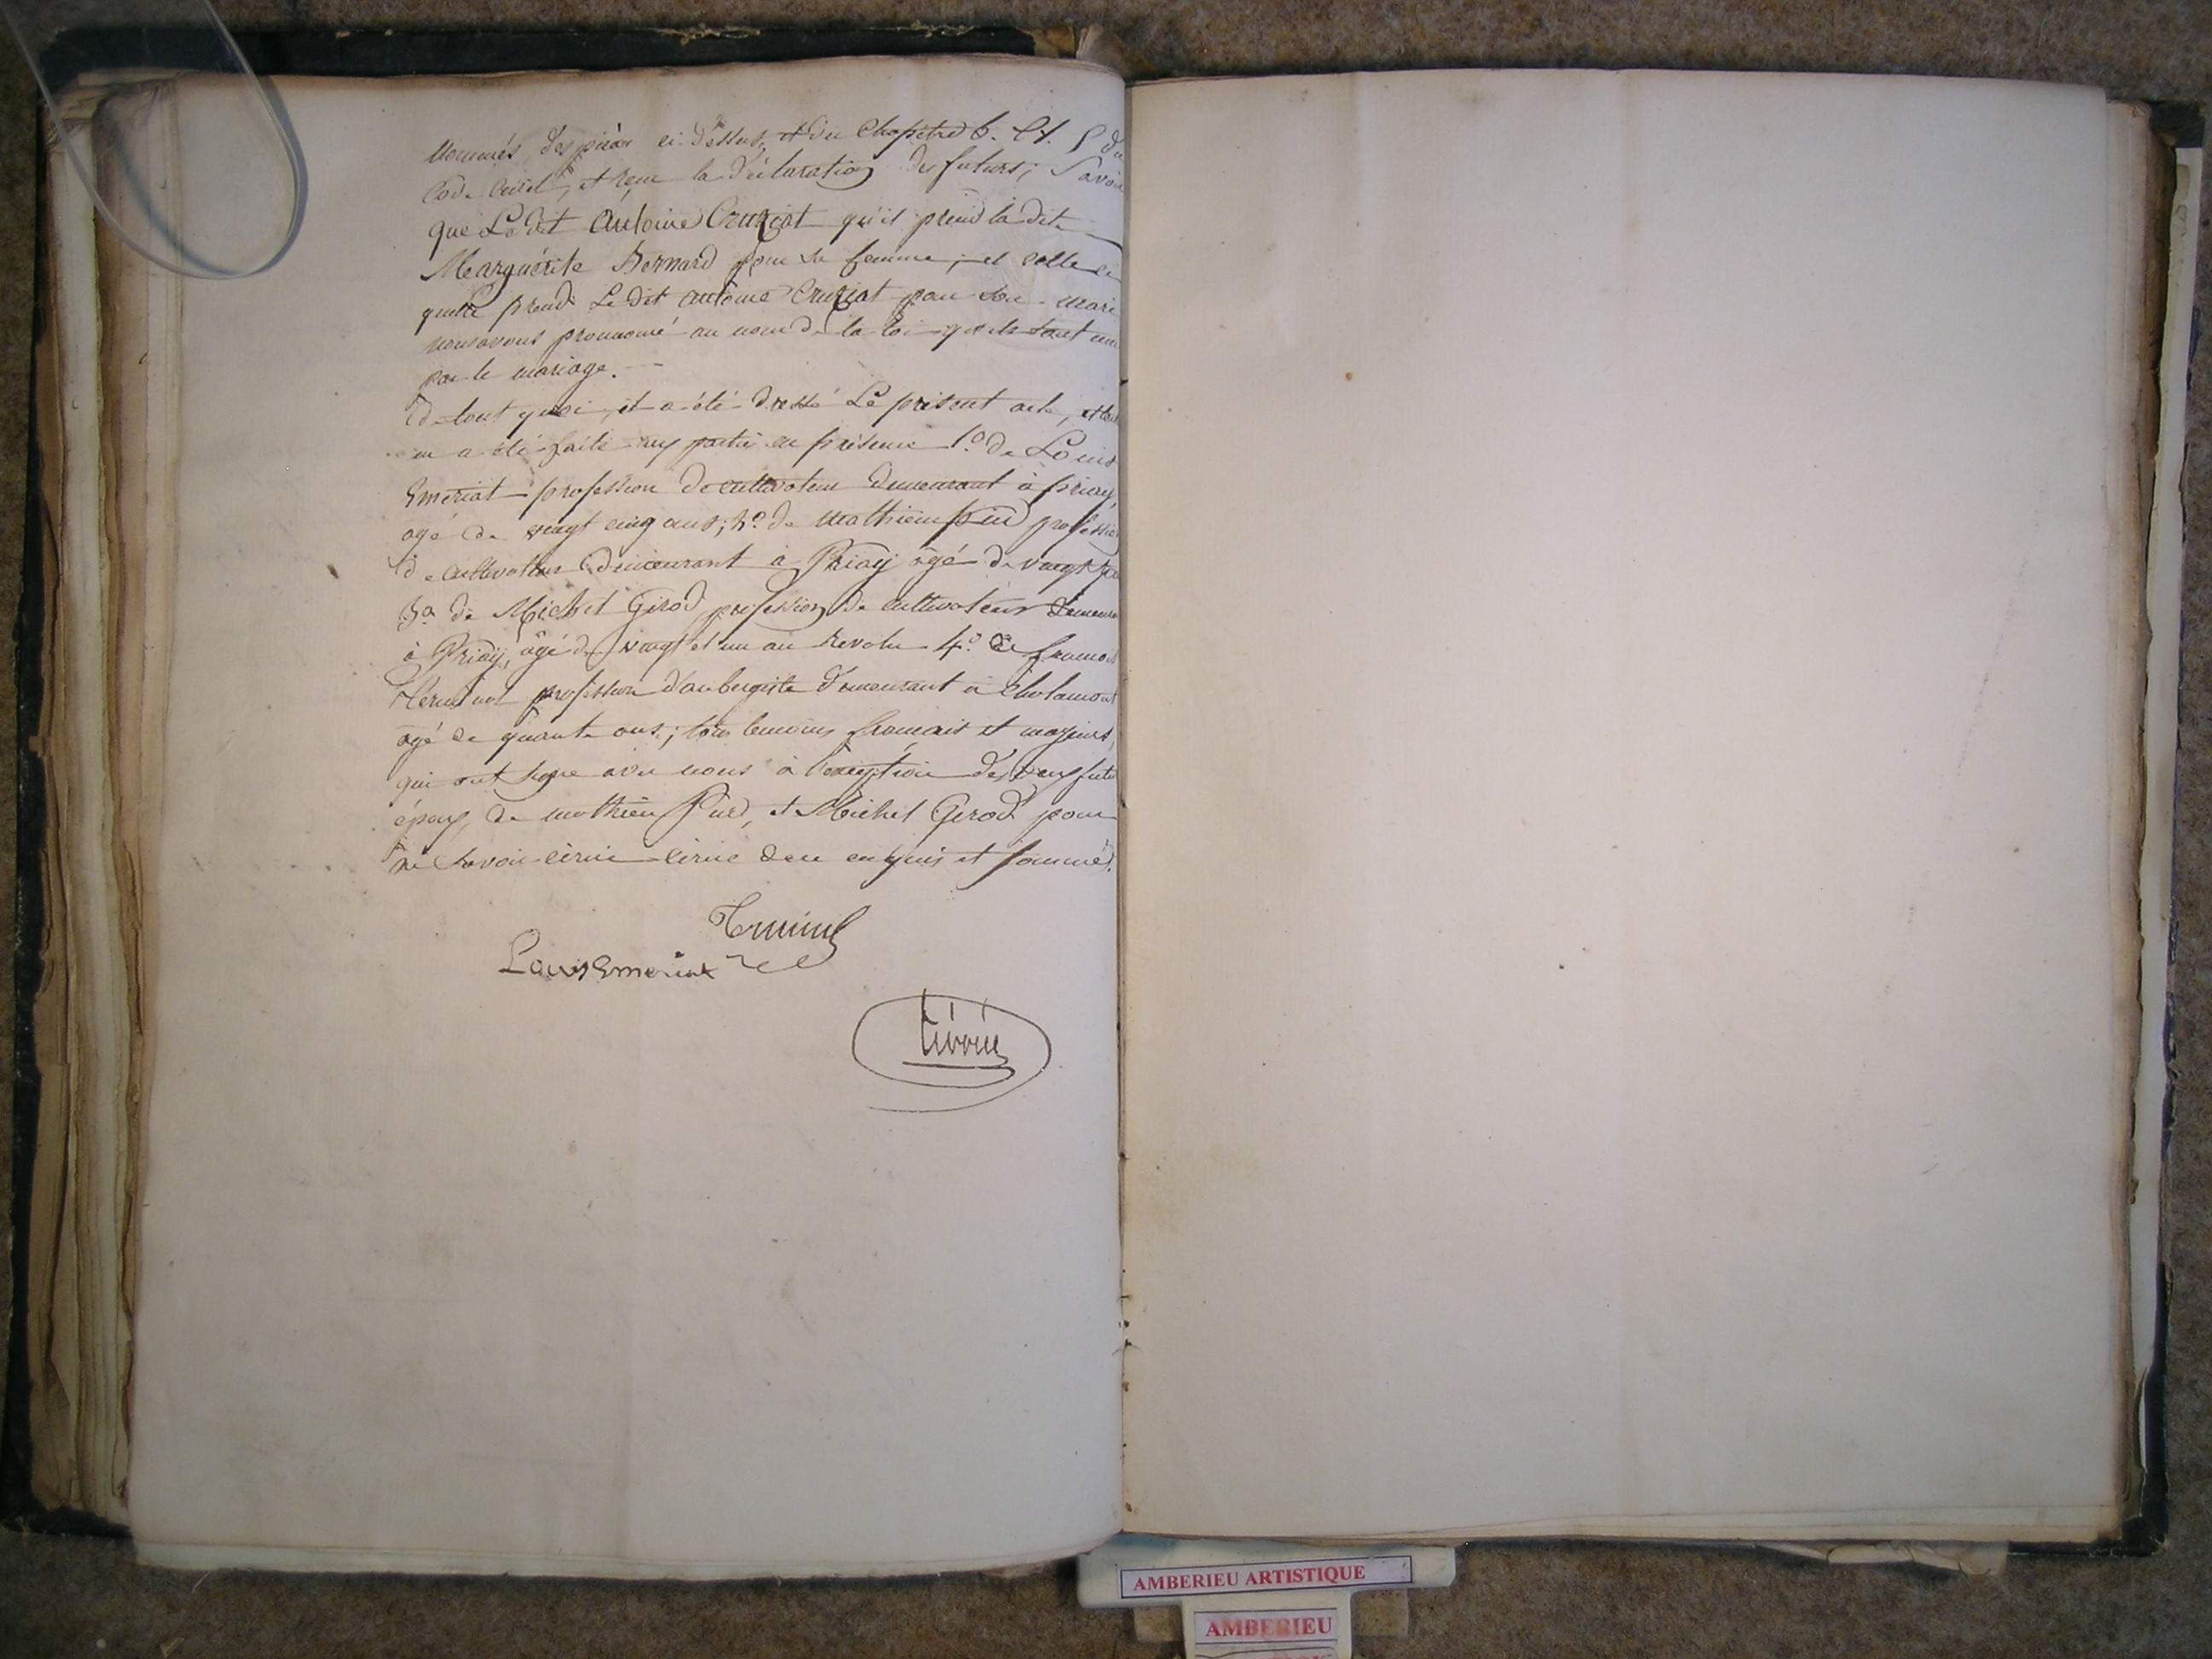 nommés des pièces ci-dessus et du Chapitre 6. du
Code Civil, et reçu la déclaration des futurs; Savoir
que Le dit Antoine Cruziat qu'il prend la dite
Marguérite Bernard pour sa femme; et celle ci
quelle prend Le dit antoine Cruziat pour son mari
nous avons prononcé au nom de la loi qu'ils sont unis
par le mariage.
de tout quoi, il a été dressé Le présent acte,
en a été faite aux parties en présence 1o. de Louis
Emeriat profession de cultivateur demeurant à priay,
agé de vingt cinq ans; 2o. de Mathieu profession
de cultivateur demeurant à Priay âgé de vingt
3o de Michel Girod profession de cultivateur demeurant
à Priay, âgé de vingt et un an revolu 4o. de françois
profession d'aubergiste demeurant à Chalamont
agé de quarante ans; tous temoins français et majeurs,
qui ont signé avec nous à l'exception des deux futurs
époux, de mathieu et Michel Girod pour
ne Savoir écrire de ce enquis et sommés.
Louis Emeriat
AMBERIEU ARTISTIQUE
AMBERIEU